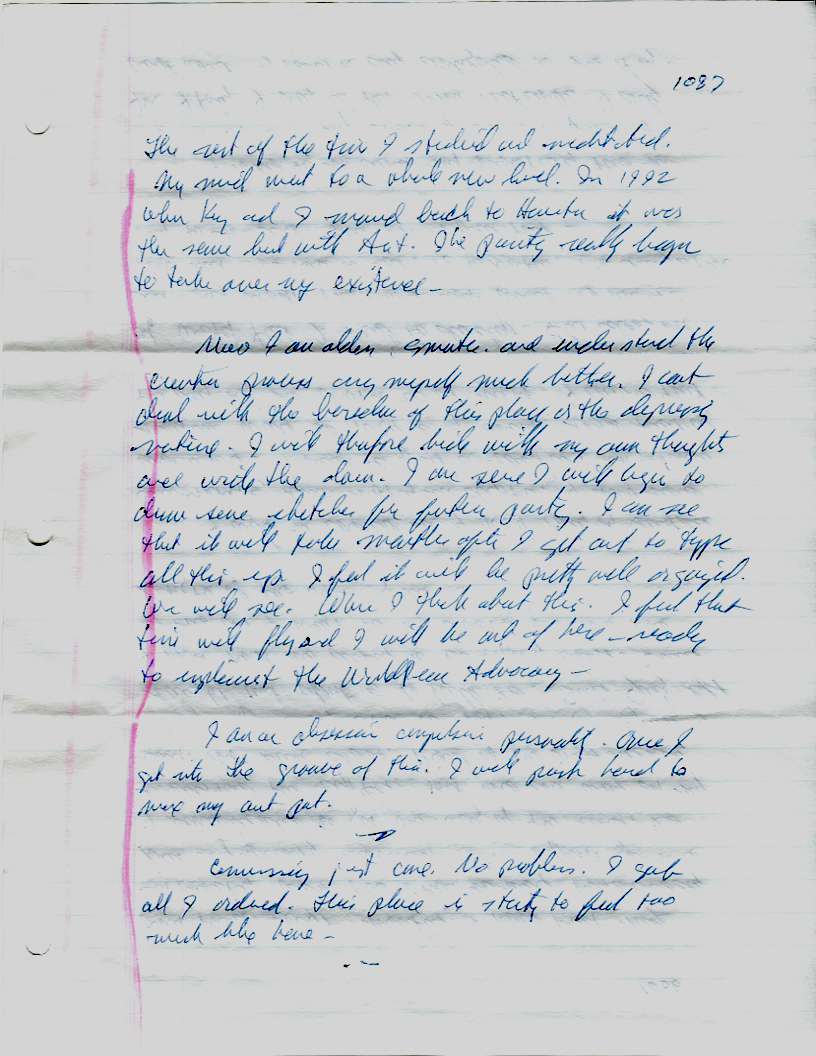 1087
The rest of the time I studied and meditated.
My mind went to a whole new level. In 1992
when Kay and I moved back to Houston it was
the same but with Art. The party really began
to take over my existence —
Now I am older, smarter and understand the
creative process and myself much better. I cant
deal with the boredom of this place or the depressing
routine. I will therefore hide with my own thoughts
and write the down. I am sure I will begin to
draw some sketches for future party. I can see
that it will take months after I get out to type
all this up. I feel it will be pretty well organized.
We will see. When I think about this. I feel that
time will fly and I will be out of here — ready
to implement the World Peace Advocacy —
I am an obsessive compulsive personality. Once I
get into the groove of this. I will push hard to
max my out put.
Commissary just came. No problem. I got
all I ordered. This place is starting to feel too
much like home —